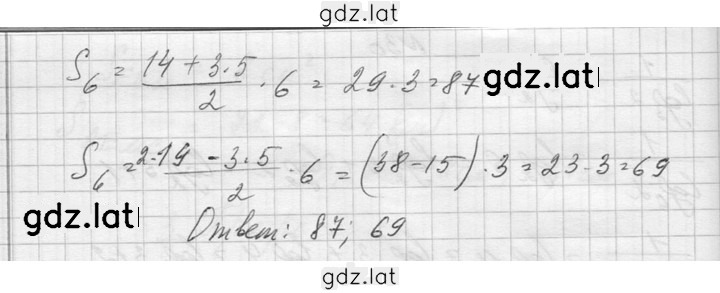 gdz.lat
S₆ = (14 + 3·5)/2 · 6 = 29·3 = 87 gdz.lat
S₆ = (2·19 - 3·5)/2 · 6 = (38 - 15)·3 = 23·3 = 69
gdz.lat
Ответ: 87; 69
gdz.lat